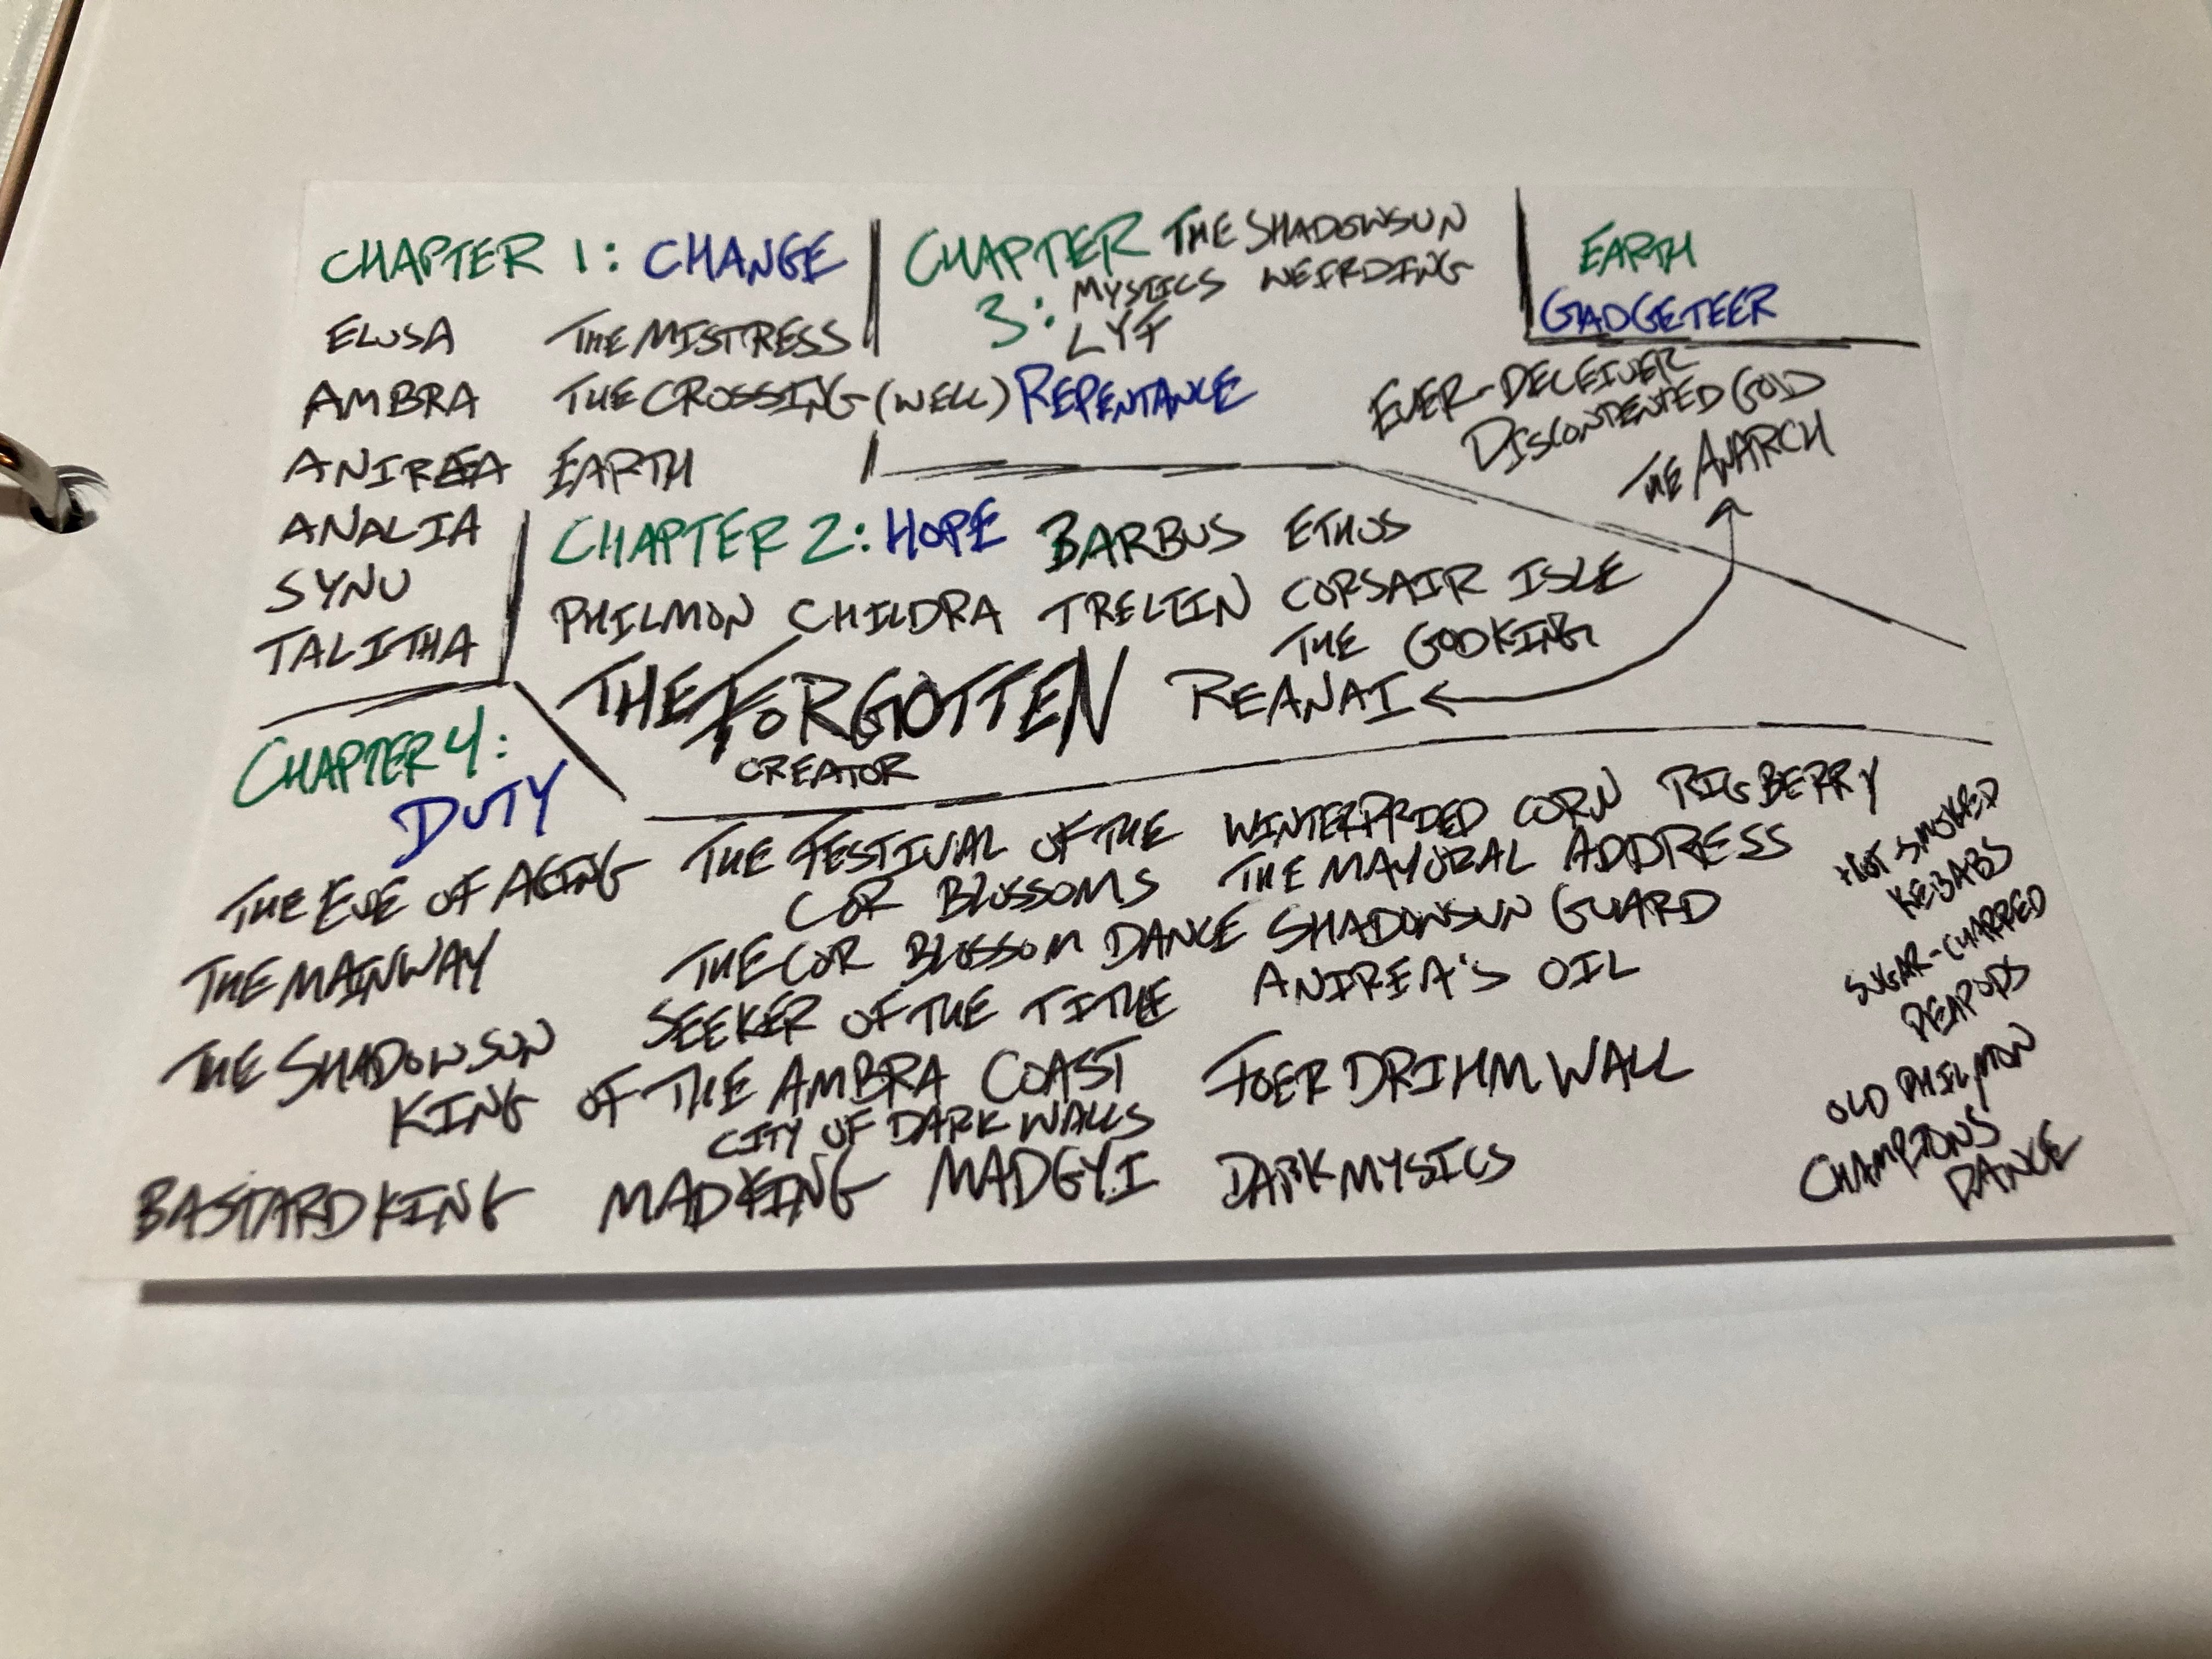 CHAPTER 1: CHANGE
ELUSA THE MISTRESS
AMBRA THE CROSSING (WELL)
ANIREA EARTH
ANALIA
SYNU
TALITHA
CHAPTER THE SHADOWSUN
3: MYSTICS WEIRDING
LYF
REPENTANCE
EARTH
GADGETEER
EVER-DECEIVER
DISCONTENTED GOD
THE ANARCH
CHAPTER 2: HOPE BARBUS ETHOS
PHILMON CHILDRA TRELTIN CORSAIR ISLE
THE GODKING
THE FORGOTTEN REANAI
CREATOR
CHAPTER 4:
DUTY
THE EVE OF AGING THE FESTIVAL OF THE WINTERPRIDED CORN RIGBERRY
COR BLOSSOMS THE MAYORAL ADDRESS
THE MAINWAY THE COR BLOSSOM DANCE SHADOWSUN GUARD
SEEKER OF THE TITHE ANIREA'S OIL
THE SHADOWSUN
KING OF THE AMBRA COAST FOER DRIHM WALL
CITY OF DARK WALLS
BASTARD KING MADKING MADGYI DARK MYSICS
HOT SMOKED
KEBABS
SUGAR-CHARRED
PEAPODS
OLD PHILMON
CHAMPIONS
DANCE